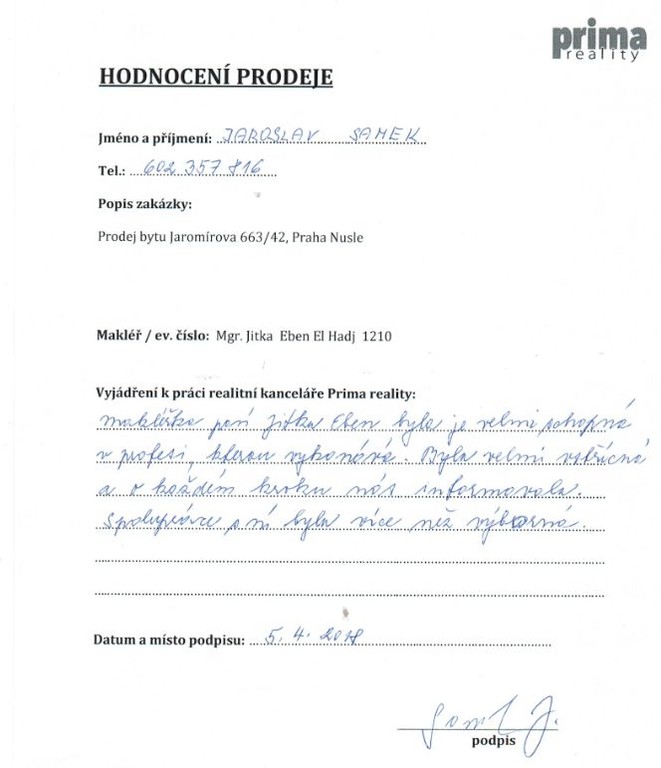 prima
reality
HODNOCENÍ PRODEJE
Jméno a příjmení: JAROSLAV SAMEK
Tel.: 602 357 816
Popis zakázky:
Prodej bytu Jaromírova 663/42, Praha Nusle
Makléř / ev. číslo: Mgr. Jitka Eben El Hadj 1210
Vyjádření k práci realitní kanceláře Prima reality:
makléřka paní Jitka Eben byla je velmi schopná
v profesi, kterou vykonává. Byla velmi vstřícná
a o každém kroku nás informovala.
Spolupráce s ní byla více než výborná.
Datum a místo podpisu: 5. 4. 2018
podpis